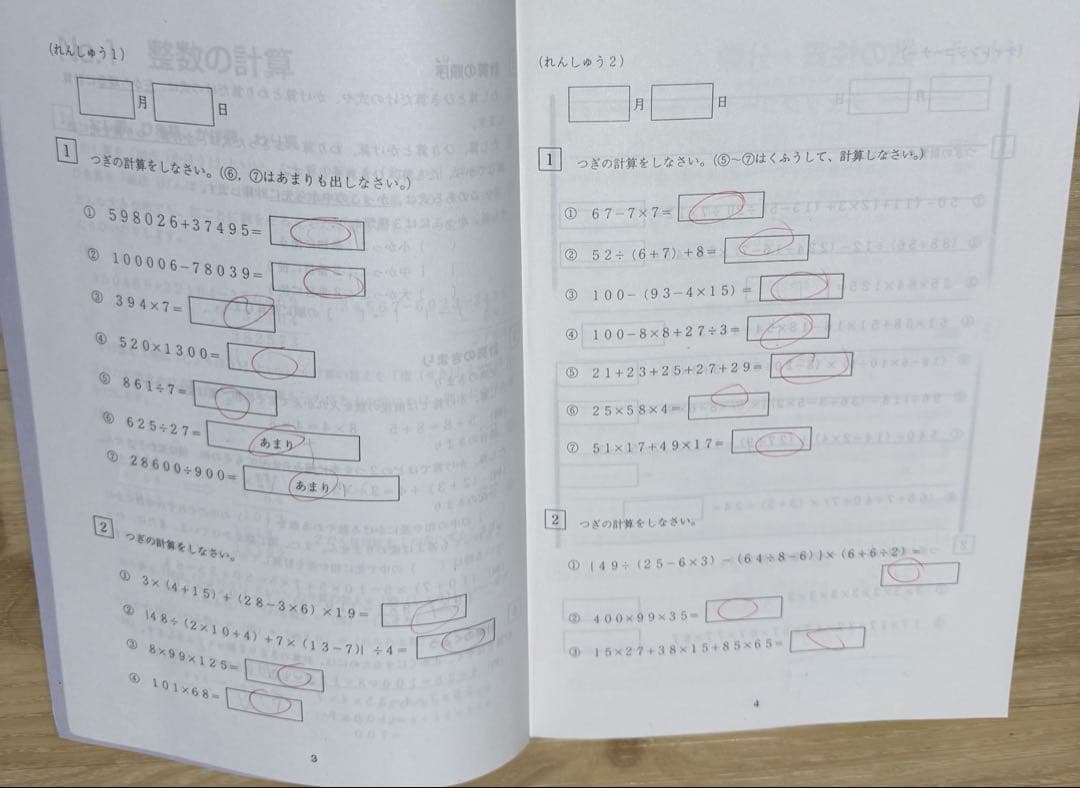 (れんしゅう1)
整数の計算
月 日
1 つぎの計算をしなさい。(⑥, ⑦はあまりも出しなさい。)
① 598026+37495=
② 100006-78039=
③ 394×7=
④ 520×1300=
⑤ 861÷7=
⑥ 625÷27= あまり
⑦ 28600÷900= あまり
2 つぎの計算をしなさい。
① 3×(4+15)+(28-3×6)×19=
② {48÷(2×10+4)+7×(13-7)}÷4=
③ 8×99×125=
④ 101×68=
3
(れんしゅう2)
月 日
1 つぎの計算をしなさい。(⑤~⑦はくふうして、計算しなさい。)
① 67-7×7=
② 52÷(6+7)+8=
③ 100-(93-4×15)=
④ 100-8×8+27÷3=
⑤ 21+23+25+27+29=
⑥ 25×58×4=
⑦ 51×17+49×17=
2 つぎの計算をしなさい。
① {49÷(25-6×3)-(64÷8-6)}×(6+6÷2)=
② 400×99×35=
③ 15×27+38×15+85×65=
4